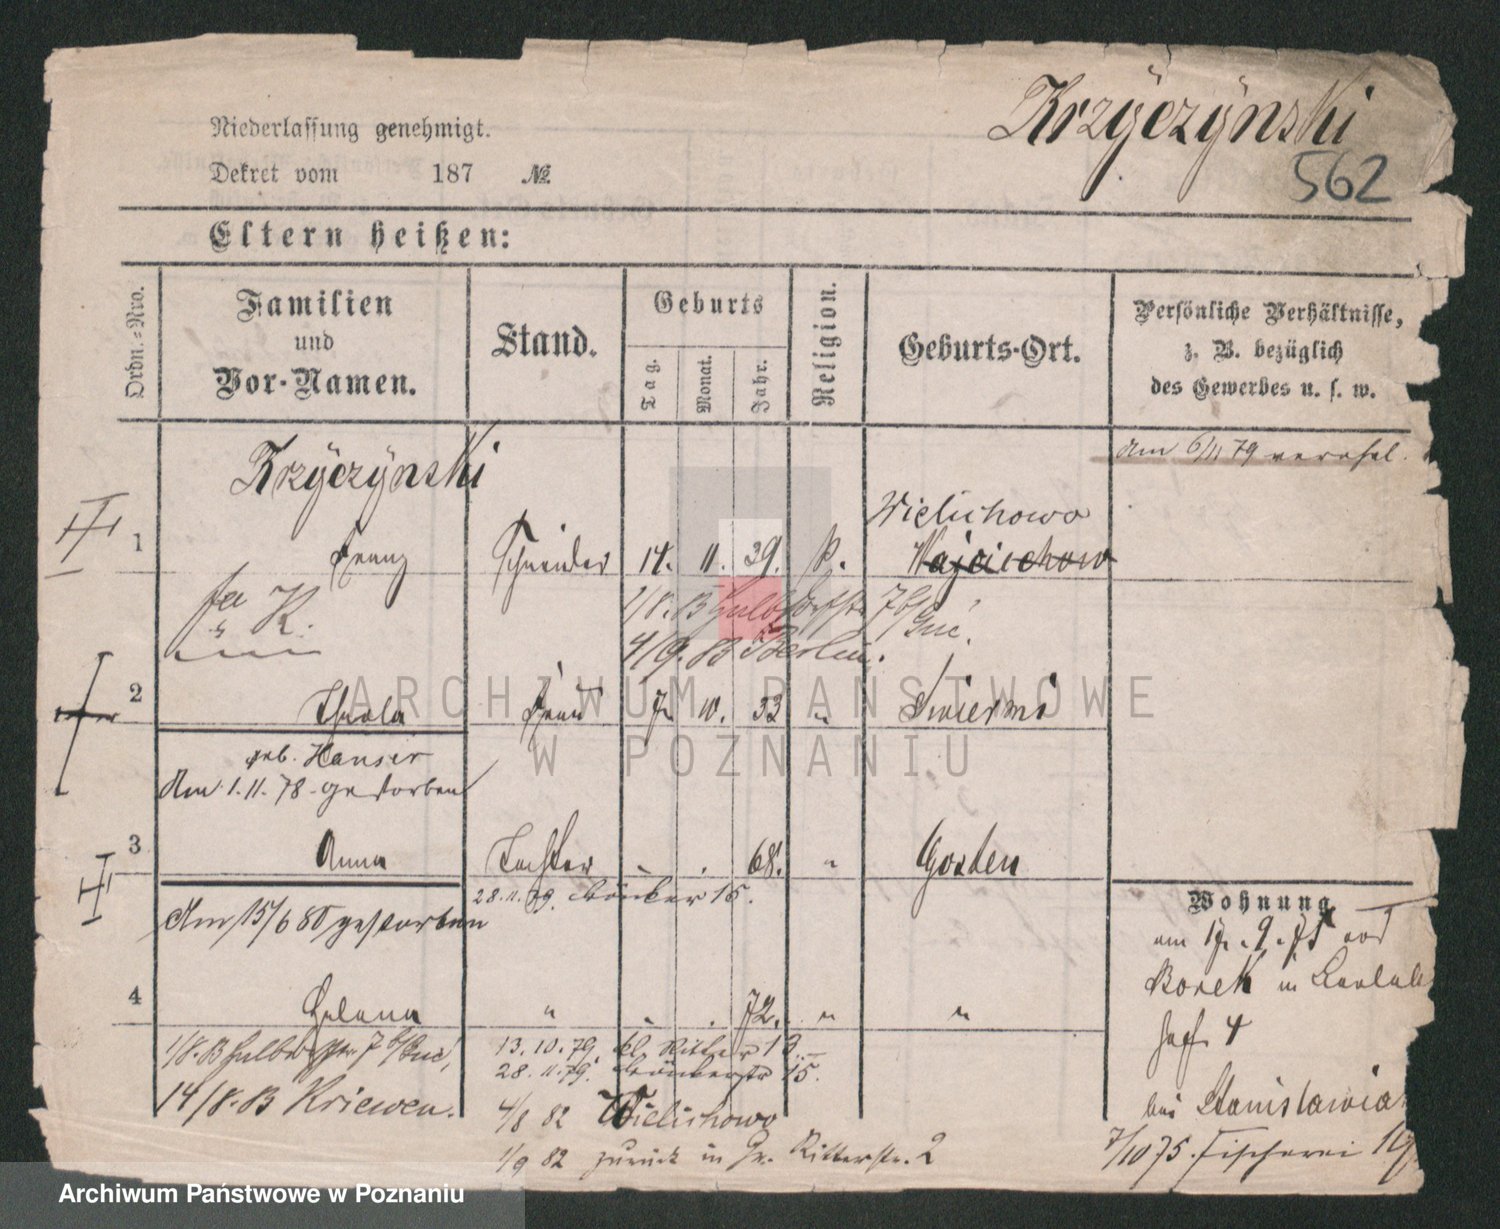 Krzyczynski
562
Niederlassung genehmigt.
Dekret vom 187 №
Eltern heißen:
Ordn.-Nro.
Familien
und
Vor-Namen.
Stand.
Geburts
Tag.
Monat.
Jahr.
Religion.
Geburts-Ort.
Persönliche Verhältnisse,
z. B. bezüglich
des Gewerbes u. s. w.
Am 6/11 79 vereh.
Krzyczynski
Wielichowo
1 Franz Schneider 14. 11. 39. k. Wajciechow
K.
4/9. 83 Berlin.
2 Thekla Frau 33 "
geb. Hauser
Am 1.11.78. gestorben
3 Anna Tochter 68. "
28.11.79. Bäcker 15.
Am 15/6 80 gestorben
4 Helena " 72. " "
13.10.79. kl. Ritter 13
28.11.79. Bäckerstr 15.
14/8. 83 Kriewen.
4/8 82 Wielichowo
1/9 82 zurück in Gr. Ritterstr. 2
Wohnung
am 17.9.75 aus
Borek in
4
bei Stanislawia
7/10 75. Fischerei 19
ARCHIWUM PAŃSTWOWE
W POZNANIU
Archiwum Państwowe w Poznaniu